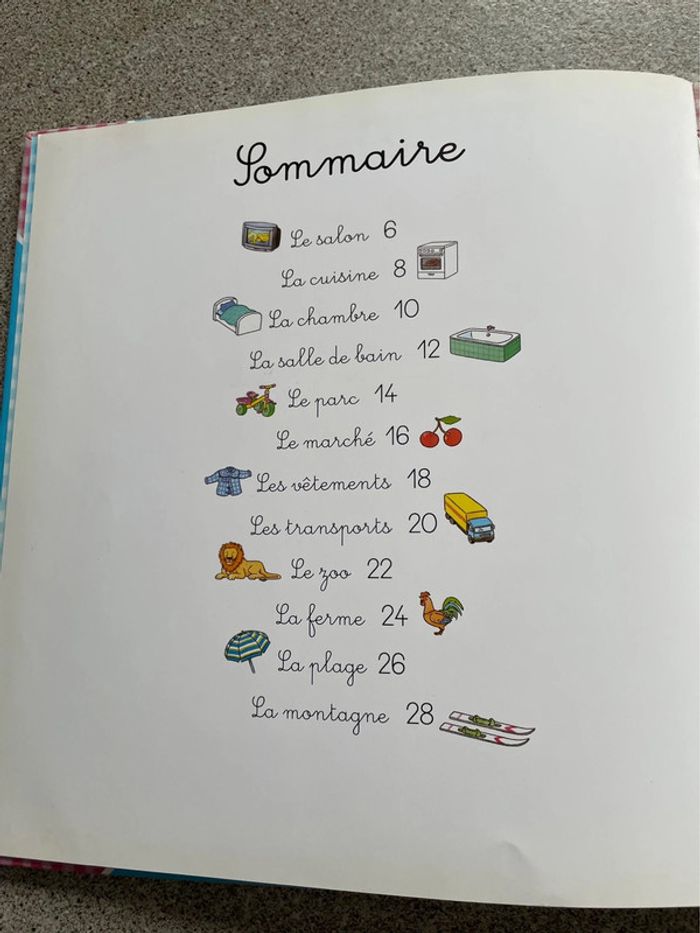 Sommaire
Le salon 6
La cuisine 8
La chambre 10
La salle de bain 12
Le parc 14
Le marché 16
Les vêtements 18
Les transports 20
Le zoo 22
La ferme 24
La plage 26
La montagne 28